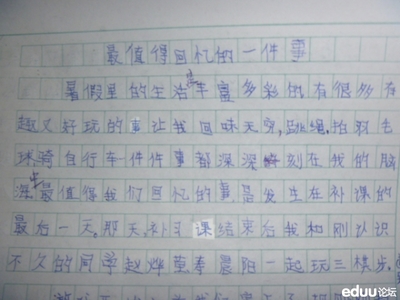 最值得回忆的一件事
暑假里的生活丰富多彩的有很多有
趣又好玩的事让我回味无穷,跳绳,拍羽毛
球骑自行车一件件事都深深刻在我的脑
海最值得我们回忆的事是发生在补课的
最后一天。那天,补习课结束后我和刚认识
不久的同学赵烨莹李晨阳一起玩三棋步,
eduu论坛